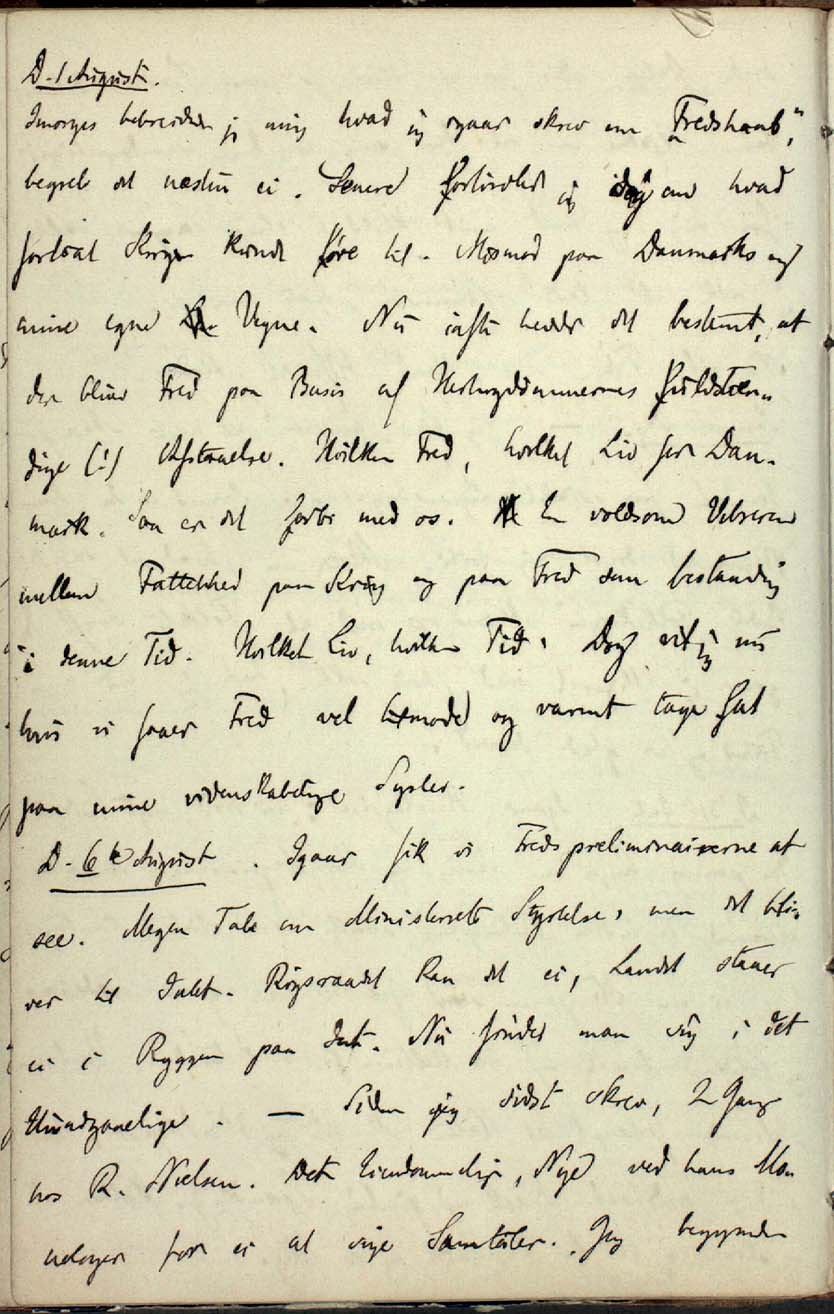 D. 1 August.
Imorges bebreidede jeg mig hvad jeg igaar skrev om "Fredshaab",
begreb det næsten ei. Senere fortvivlet jeg idag om hvad
fortsat Krigen kunde føre til. Mismod paa Danmarks og
mine egne Vegne. Nu iaften hedder det bestemt, at
der bliver Fred paa Basis af Hertugdømmernes fuldstæn-
dige (!) Afstaaelse. Hvilken Fred, hvilket Liv for Dan-
mark. Saa er det forbi med os. En voldsom Vibreren
mellem Fattethed paa Krig og paa Fred som bestandig
i denne Tid. Hvilket Liv, hvilken Tid. Dog vil jeg nu
hvis vi faaer Fred vel tilmode og varmt tage fat
paa mine videnskabelige Sysler.
D. 6te August. Igaar fik vi Fredspreliminairerne at
see. Megen Tale om Ministeriets Styrtelse, men det bli-
ver til Intet. Rigsraadet kan det ei, Landet staaer
ei i Ryggen paa det. Nu finder man sig i det
Uundgaaelige. — Siden jeg sidst skrev, 2 Gange
hos R. Nielsen. Det Eiendommelige, Nye ved hans Mo-
nologer for ei at sige Samtaler. Jeg begynder